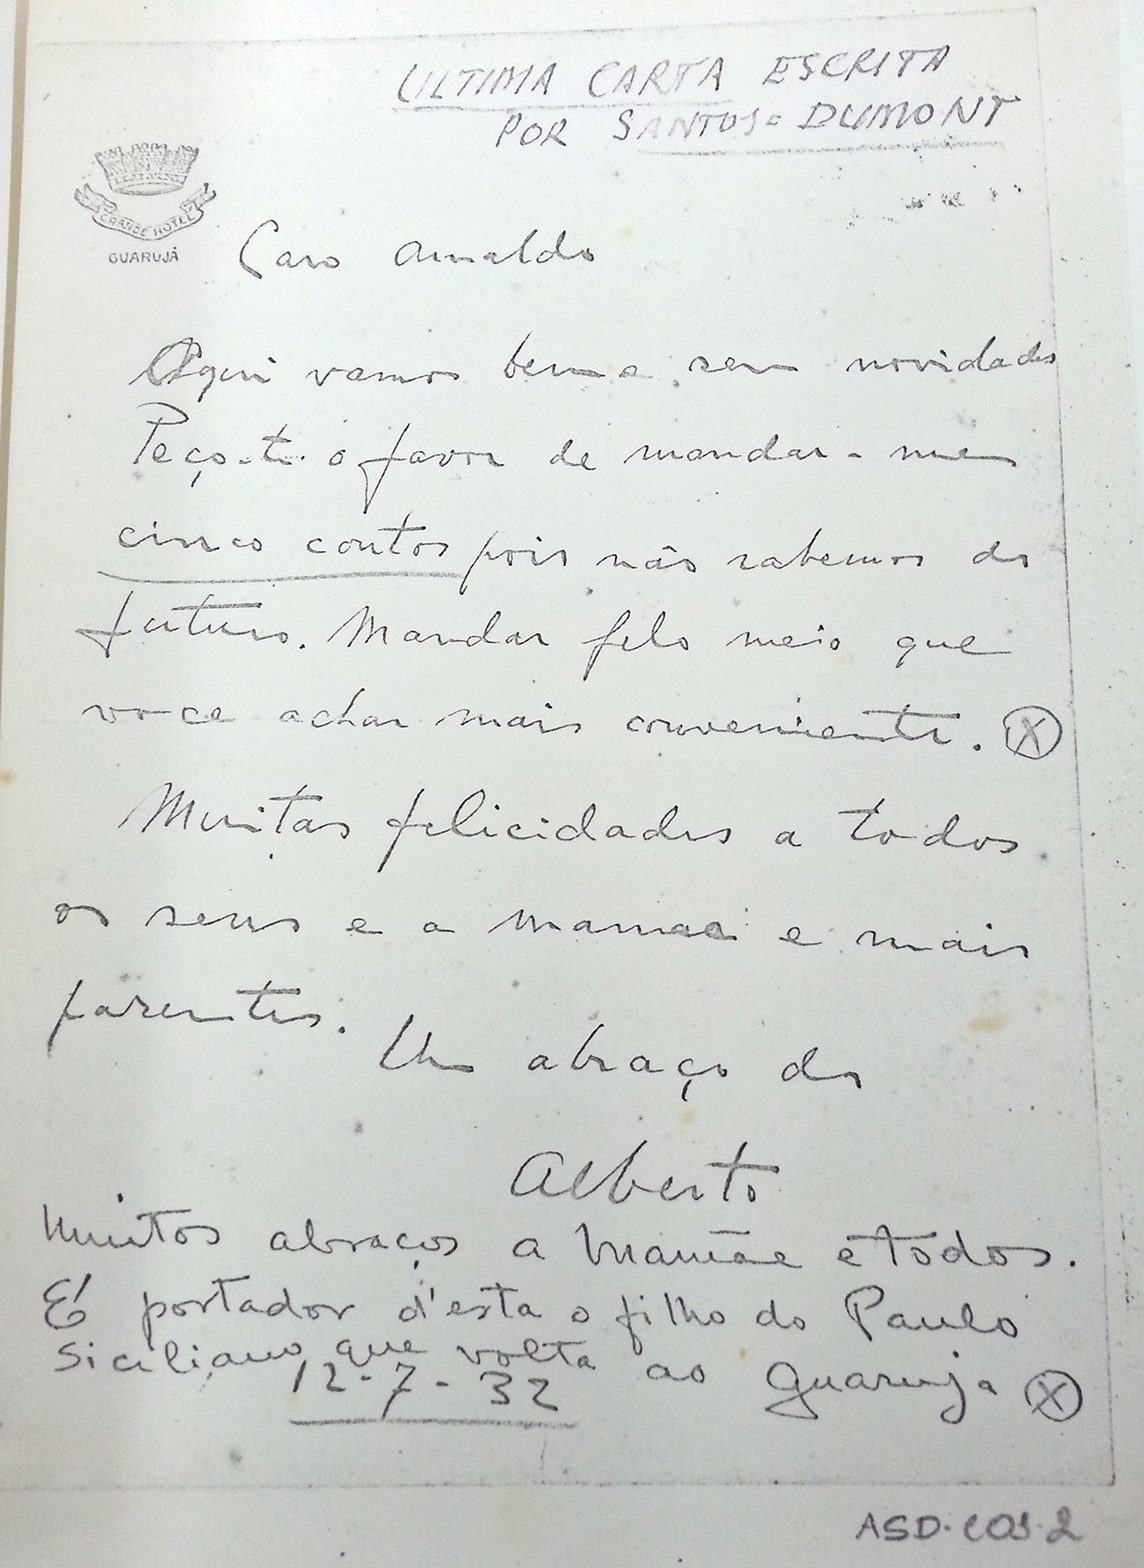 ULTIMA CARTA ESCRITA
POR SANTOS=DUMONT
GRANDE HOTEL
GUARUJÁ
Caro Arnaldo
Aqui vamos bem e sem novidades
Peço-te o favor de mandar-me
cinco contos pois não sabemos do
futuro. Mandar pelo meio que
voce achar mais conveniente. X
Muitas felicidades a todos
os seus e a mamãe e mais
parentes.
Um abraço do
Alberto
Muitos abraços a Mamãe e todos.
É portador d'esta o filho do Paulo
Siciliano que volta ao Guaruja X
12-7-32
ASD.